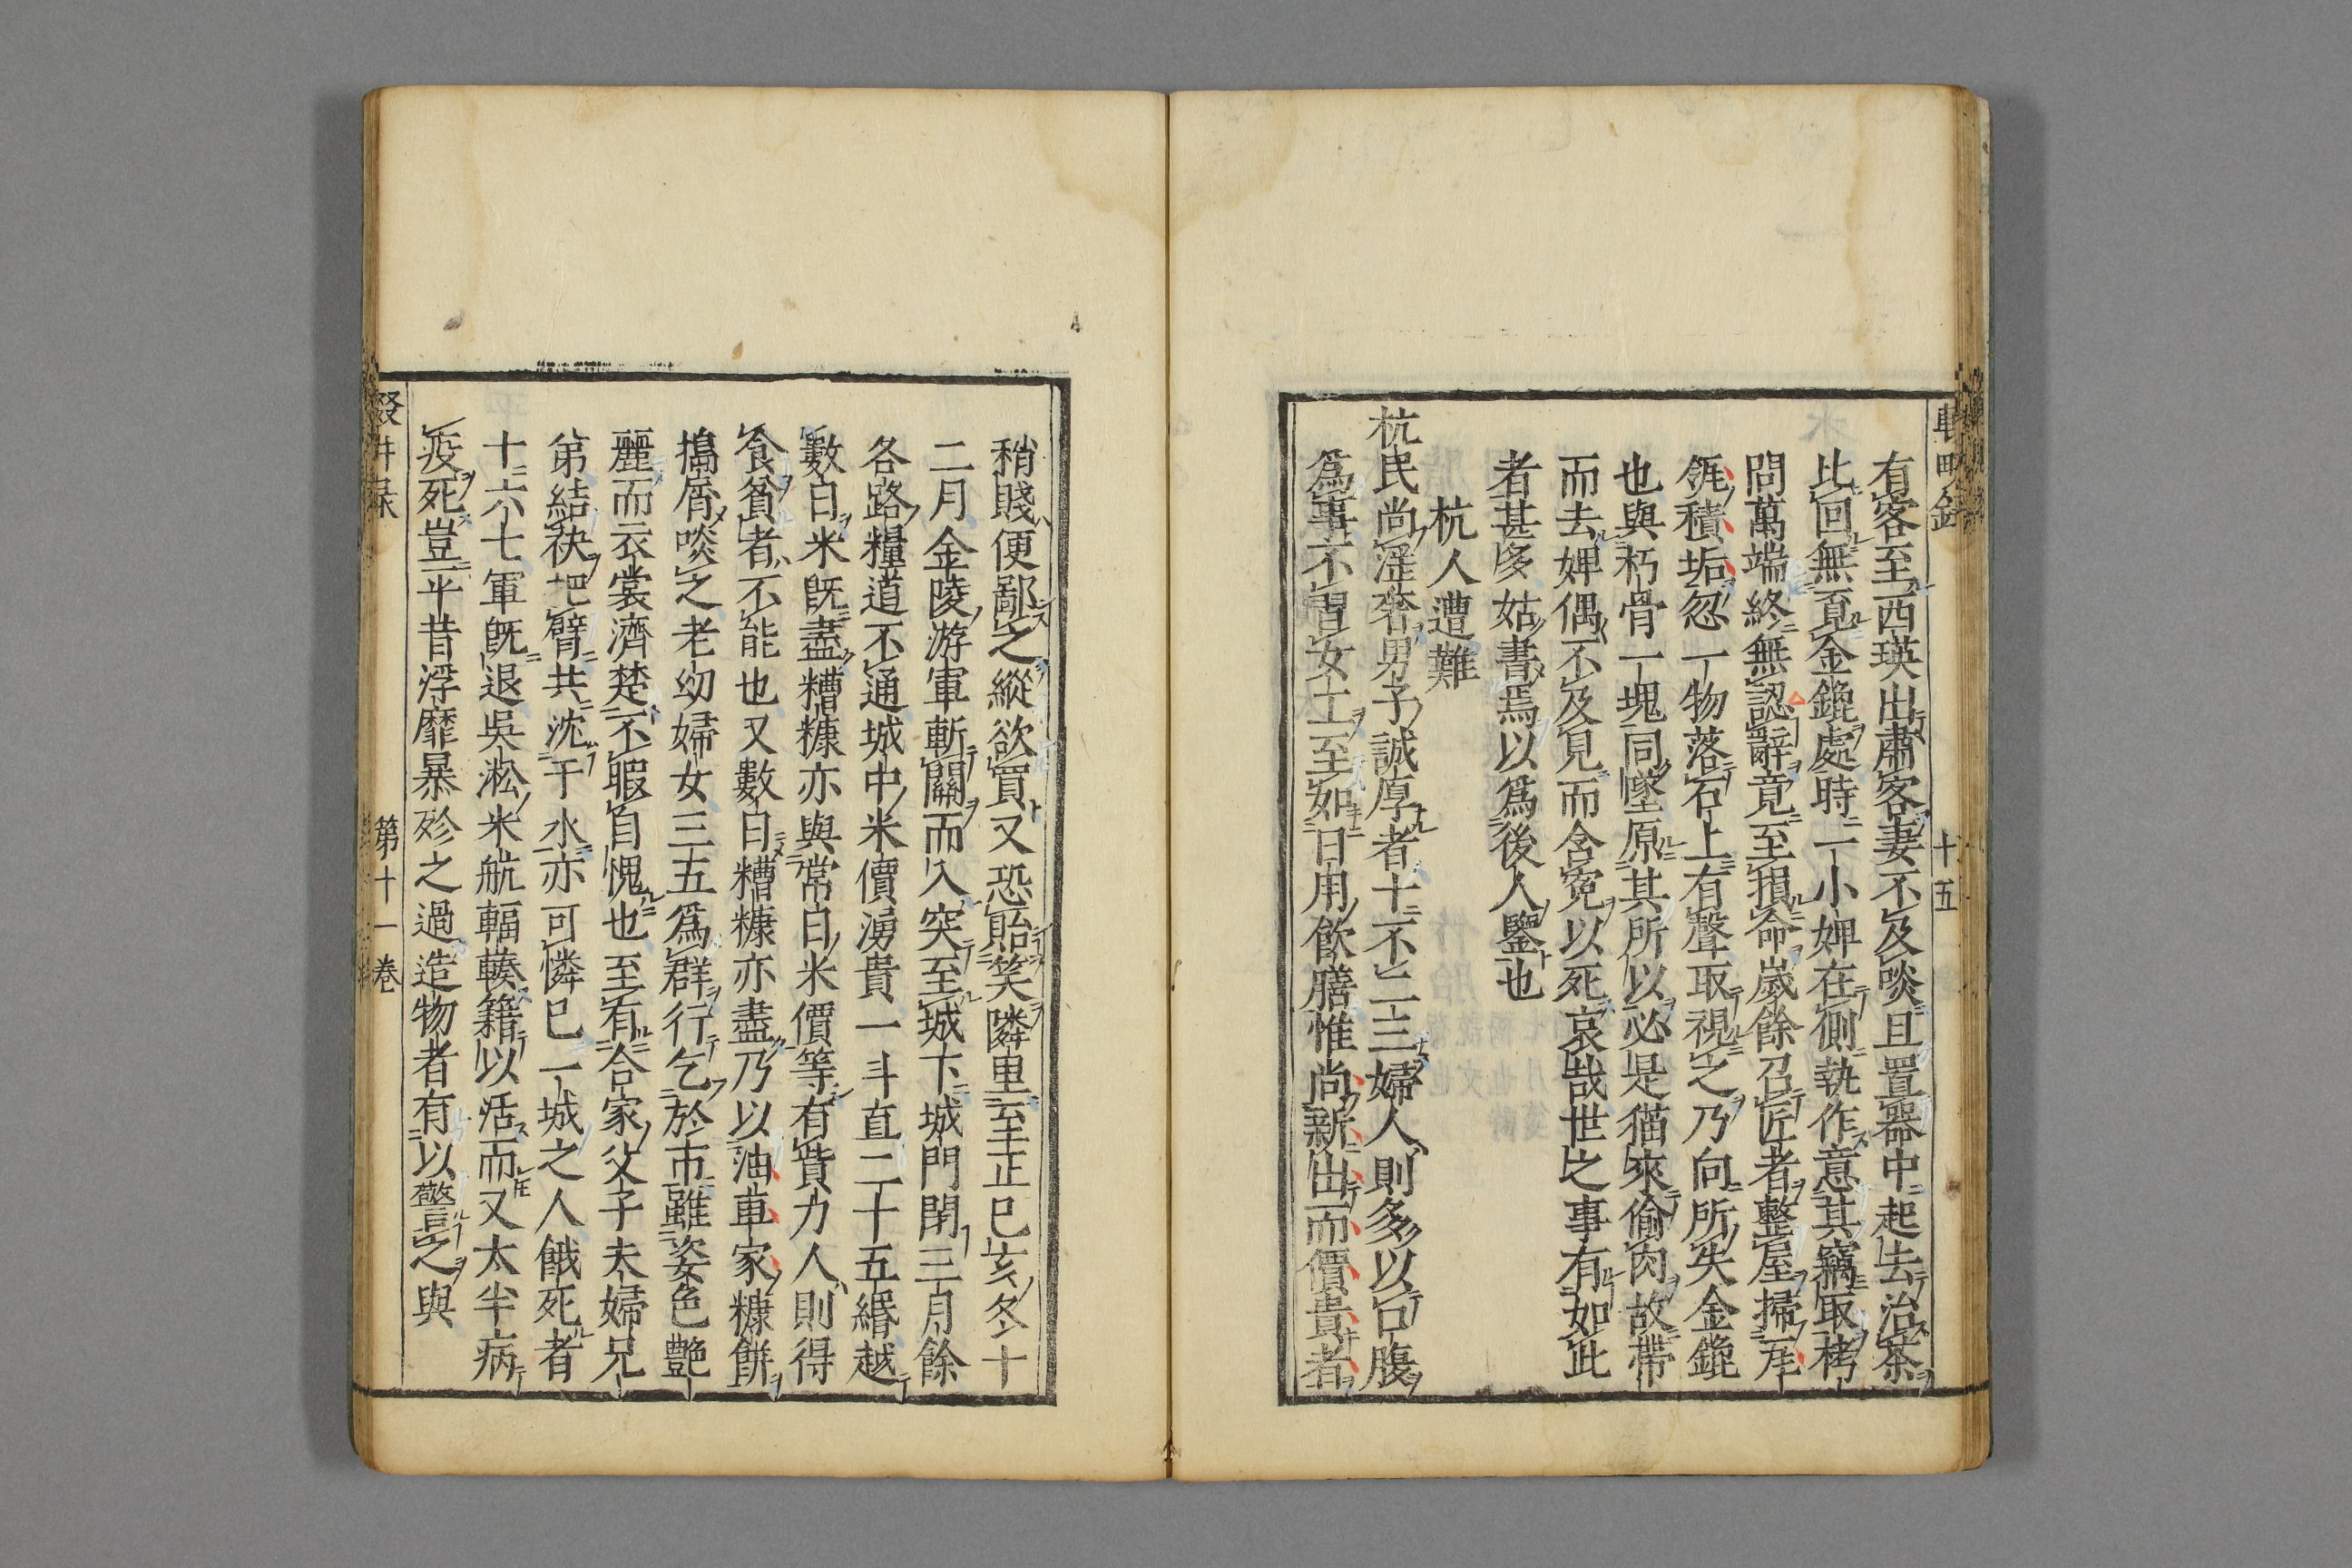 有客至西瑛出肅客妻不及啖且置器中起去治茶
比回無覔金鎞處時一小婢在側執作意其竊取栲
問萬端終無認辭竟至損命歲餘召匠者整屋掃瓦
瓴積垢忽一物落石上有聲取視之乃向所失金鎞
也與朽骨一塊同墜原其所以必是猫來偷肉故帶
而去婢偶不及見而含寃以死哀哉世之事有如此
者甚多姑書焉以爲後人鑒也
杭人遭難
杭民尚淫奢男子誠厚者十不二三婦人則多以口腹
爲事不習女工至如日用飲膳惟尚新出而價貴者
稍賤便鄙之縱欲買又恐貽笑隣里至正巳亥冬十
二月金陵游軍斬關而入突至城下城門閉三月餘
各路糧道不通城中米價湧貴一斗直二十五緡越
數日米旣盡糟糠亦與常日米價等有貲力人則得
食貧者不能也又數日糟糠亦盡乃以油車家糠餅
搗屑啖之老幼婦女三五爲群行乞於市雖姿色艶
麗而衣裳濟楚不暇自愧也至有合家父子夫婦兄
弟結袂把臂共沈于水亦可憐巳一城之人餓死者
十六七軍旣退吳淞米航輻輳籍以活而又太半病
疫死豈平昔浮靡暴殄之過造物者有以警之與
十五
第十一卷